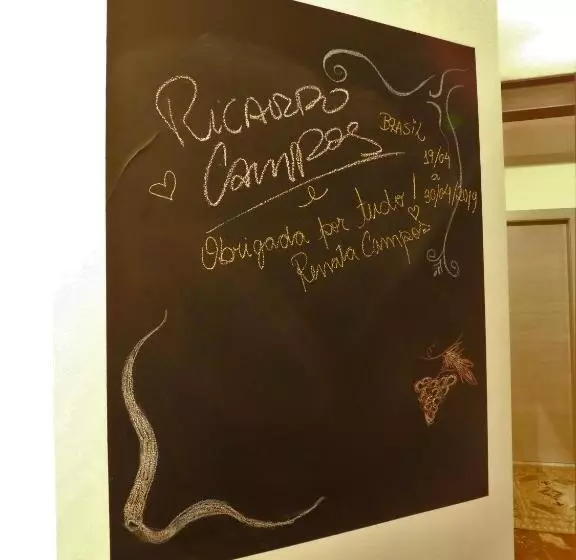 RICARDO
CAMPOS
e
Obrigada por tudo!
Renata Campos
BRASIL
19/04
a
30/04/2019